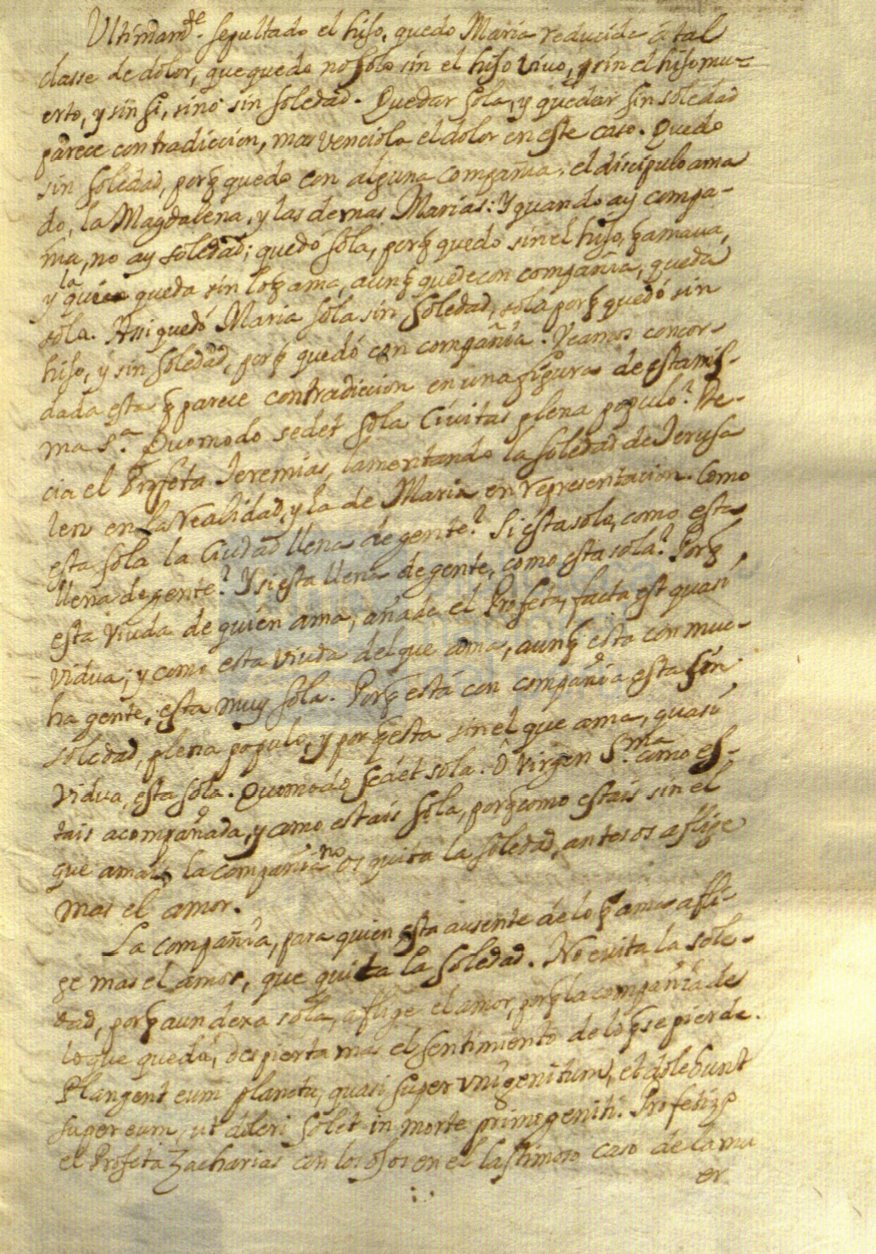 Ultimamte. sepultado el hijo, quedo Maria reducida â tal
classe de dolor, que quedo no solo sin el hijo vivo, y sin el hijo mu=
erto, y sin si, sino sin soledad. Quedar sola, y quedar sin soledad
parece contradicion, mas venciola el dolor en este caso. Quedo
sin soledad, porq quedo con alguna compañia, el discipulo ama
do, la Magdalena, y las demas Marias: Y quando ay compa-
ñia, no ay soledad; quedó sola, porq quedo sin el hijo, q amava,
y la quien queda sin lo q ama, aunq quede con compañia, queda
sola. Assi quedó Maria sola sin soledad, sola porq quedó sin
hijo, y sin soledad, porq quedó con compañia. Veamos concor-
dada esta q parece contradicion en una figura de esta mis-
ma Sa. Quomodo sedet sola Civitas plena populo? De-
cia el Profeta Jeremias, lamentando la soledad de Jerusa
len en la realidad, y la de Maria en representacion. Como
esta sola la Ciudad llena de gente? Si esta sola, como esta
llena de gente? Y si esta llena de gente, como esta sola? Porq
esta viuda de quien ama, añade el Profeta, facta est quasi
vidua; y como esta viuda del que ama, aunq esta con mu-
cha gente, esta muy sola. Porq está con compañia esta sin
soledad, plena populo, y porq esta sin el que ama, quasi
vidua, esta sola. Quomodo sedet sola. O Virgen Sma como es-
tais acompañada, y como estais sola, porq como estais sin el
que amais, la compañia no os quita la soledad, antes os aflige
mas el amor.
La compañia, para quien esta ausente de lo q ama afli-
ge mas el amor, que quita la soledad. No evita la sole-
dad, porq aun dexa sola, aflige el amor, porq la compañia de
lo que queda, despierta mas el sentimiento de lo q se pierde.
Plangent eum planctu, quasi super unigenitum, et dolebunt
super eum, ut doleri solet in morte primogeniti. Profetizo
el Profeta Zacharias con los ojos en el lastimoso caso de la mu
er